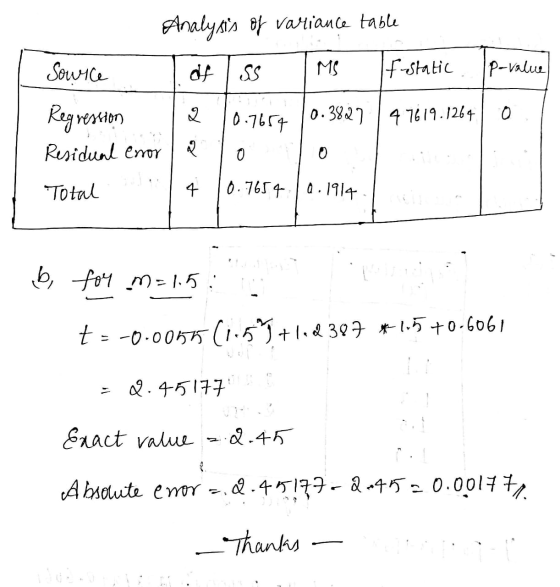 Analysis of variance table
Source df SS MS f-static p-value
Regression 2 0.7654 0.3827 47619.1264 0
Residual error 2 0 0
Total 4 0.7654 0.1914
b, for m=1.5 :
t = -0.0055 (1.5²) + 1.2387 * 1.5 + 0.6061
= 2.45177
Exact value = 2.45
Absolute error = 2.45177 - 2.45 = 0.00177
— Thanks —